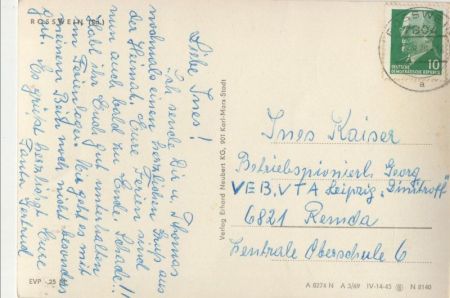 ROSSWEIN (Sa.)
Liebe Ines!
Ich sende Dir u. Thomas
nochmals einen herzlichen Gruß aus
der Heimat. Eure Ferien sind
nun auch bald zu Ende. Schade!!
Habt ihr Euch gut unterhalten
im Ferienlager. Wie geht es mit
meinem Bein noch nicht besonders
gut. Es grüßt herzlichst Eure
Tante Gertrud
EVP -,25
Verlag Erhard Neubert KG, 901 Karl-Marx-Stadt
10
DEUTSCHE
DEMOKRATISCHE REPUBLIK
a
Ines Kaiser
Betriebspionierl. Georg
VEB. VTA Leipzig „Dimitroff"
6821 Remda
Zentrale Oberschule 6
A 0274 N A 3/69 IV-14-45 N 8140